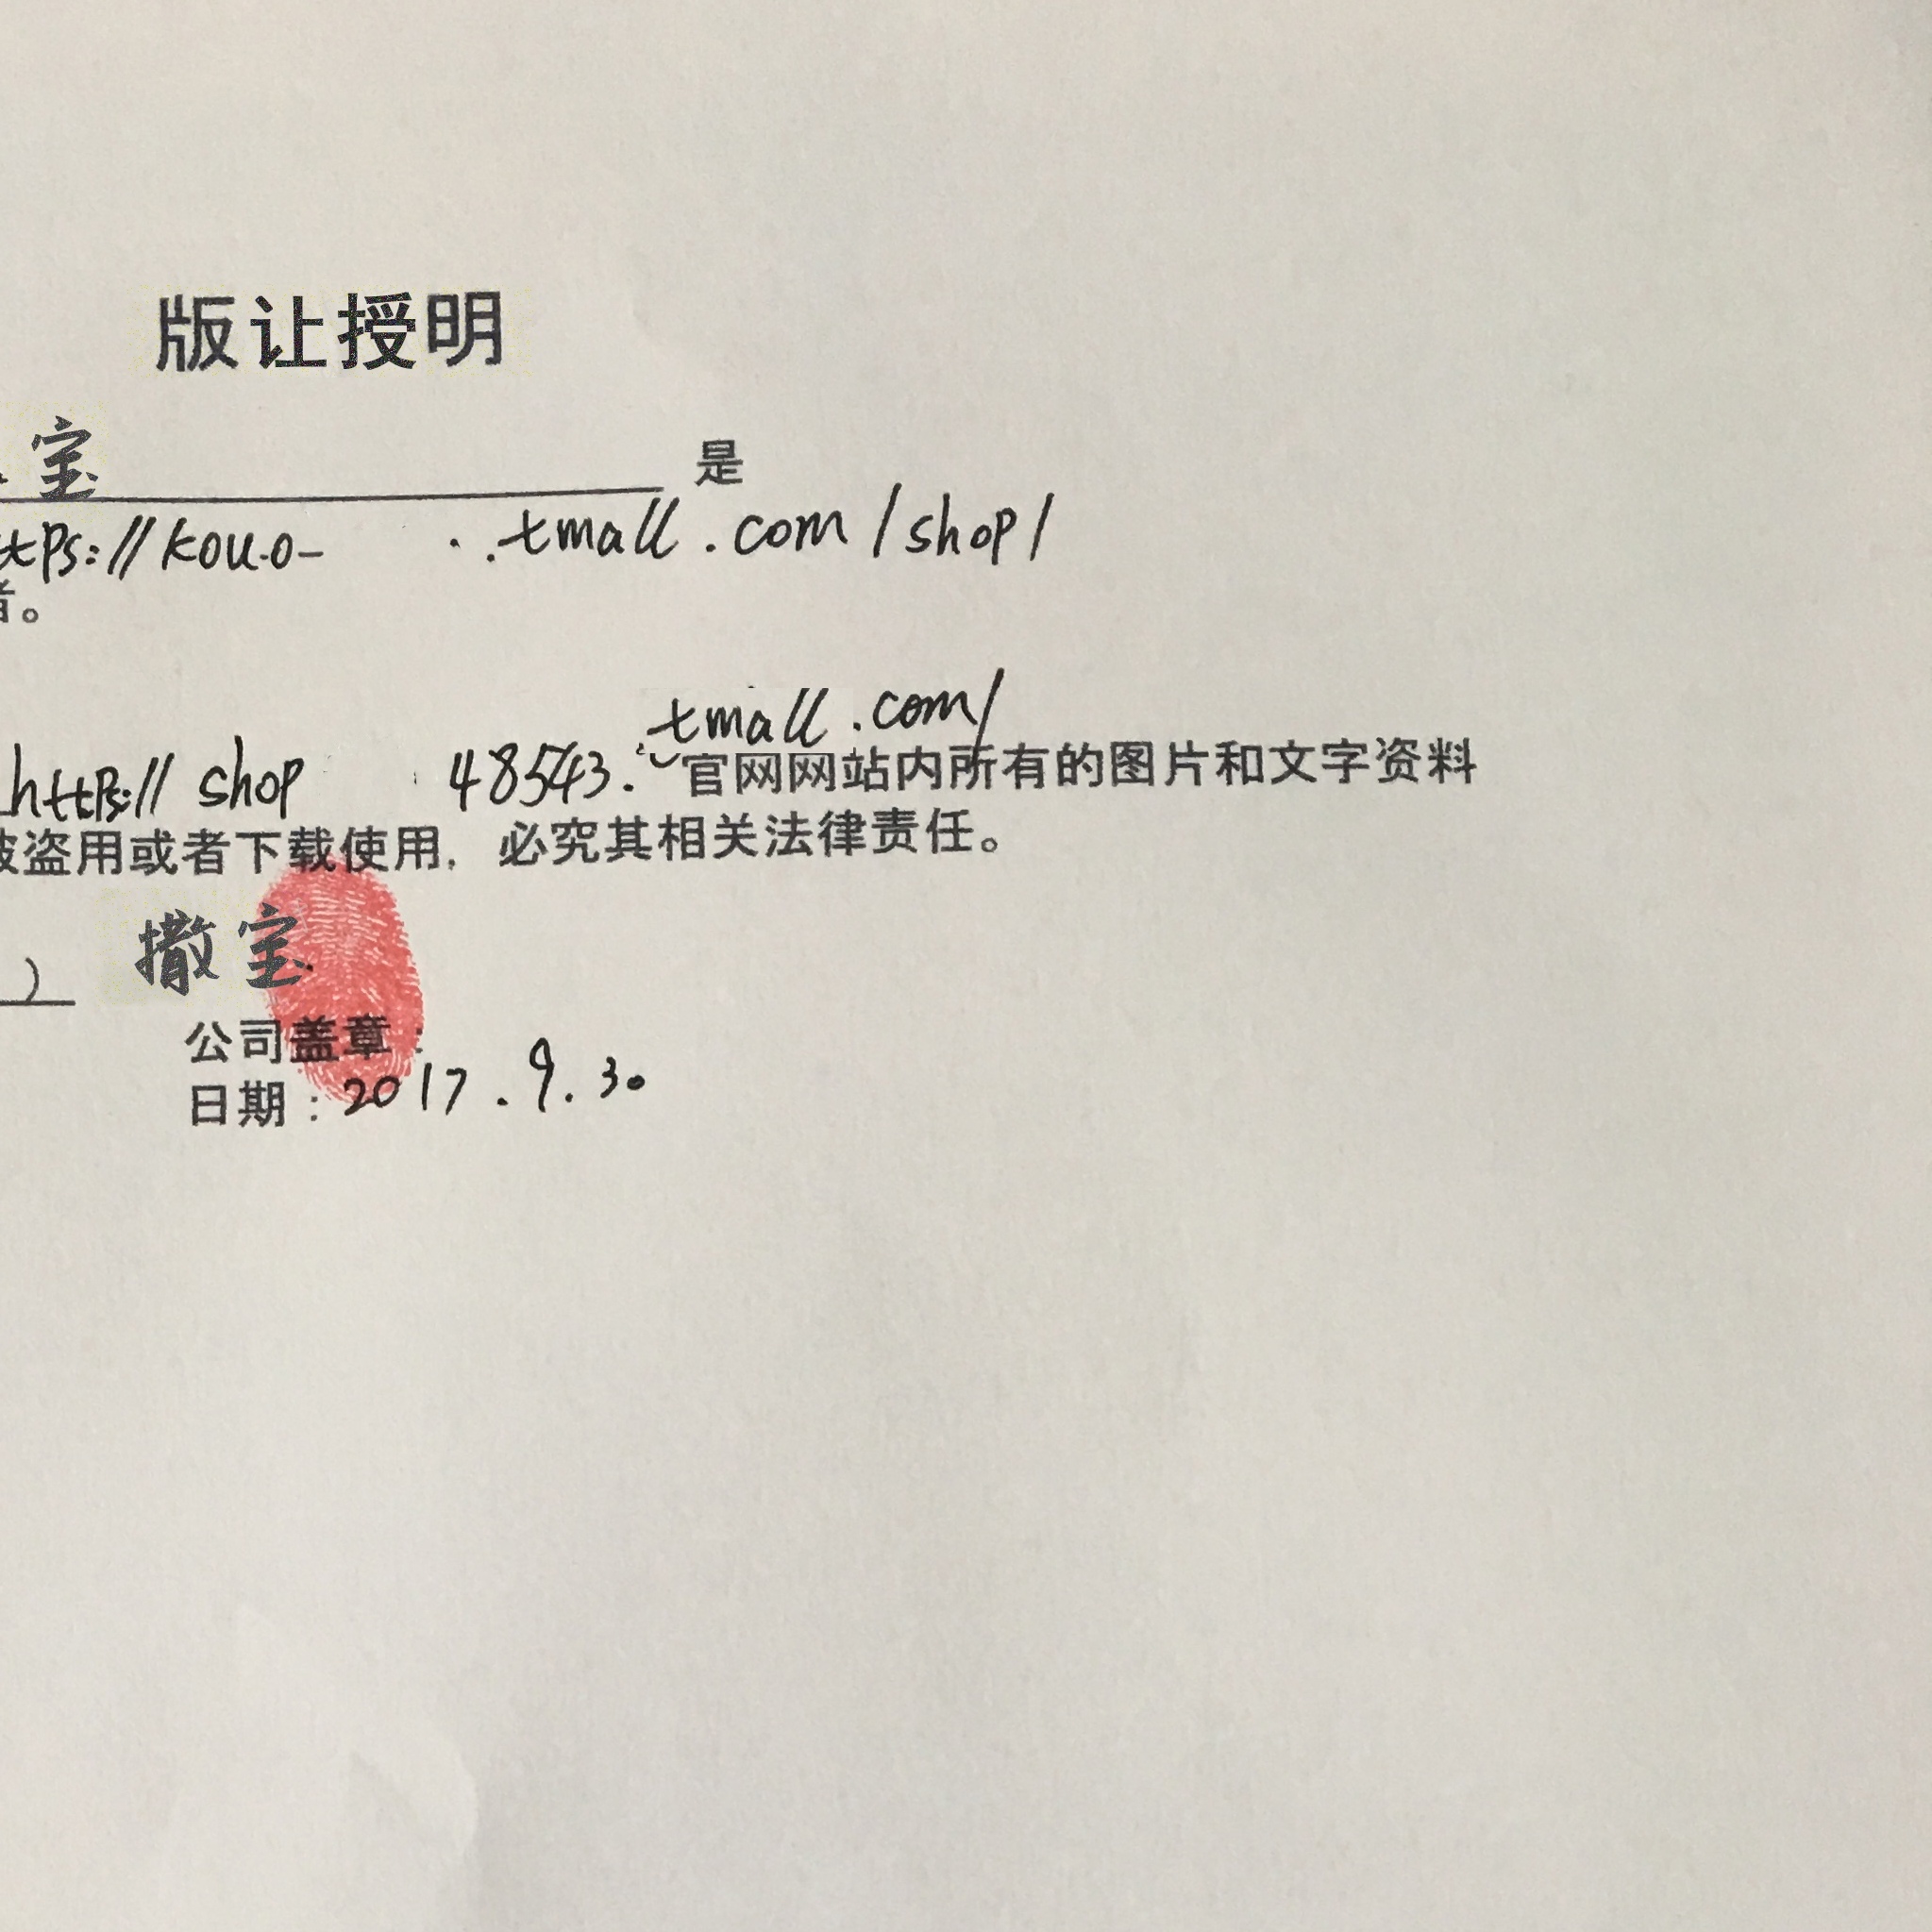 版让授明
宝
是
ttps://kou.o- ..tmall.com/shop/
者。
tmall.com/
https:// shop 48543. 官网网站内所有的图片和文字资料
被盗用或者下载使用，必究其相关法律责任。
) 撒宝
公司盖章：
日期：2017.9.30